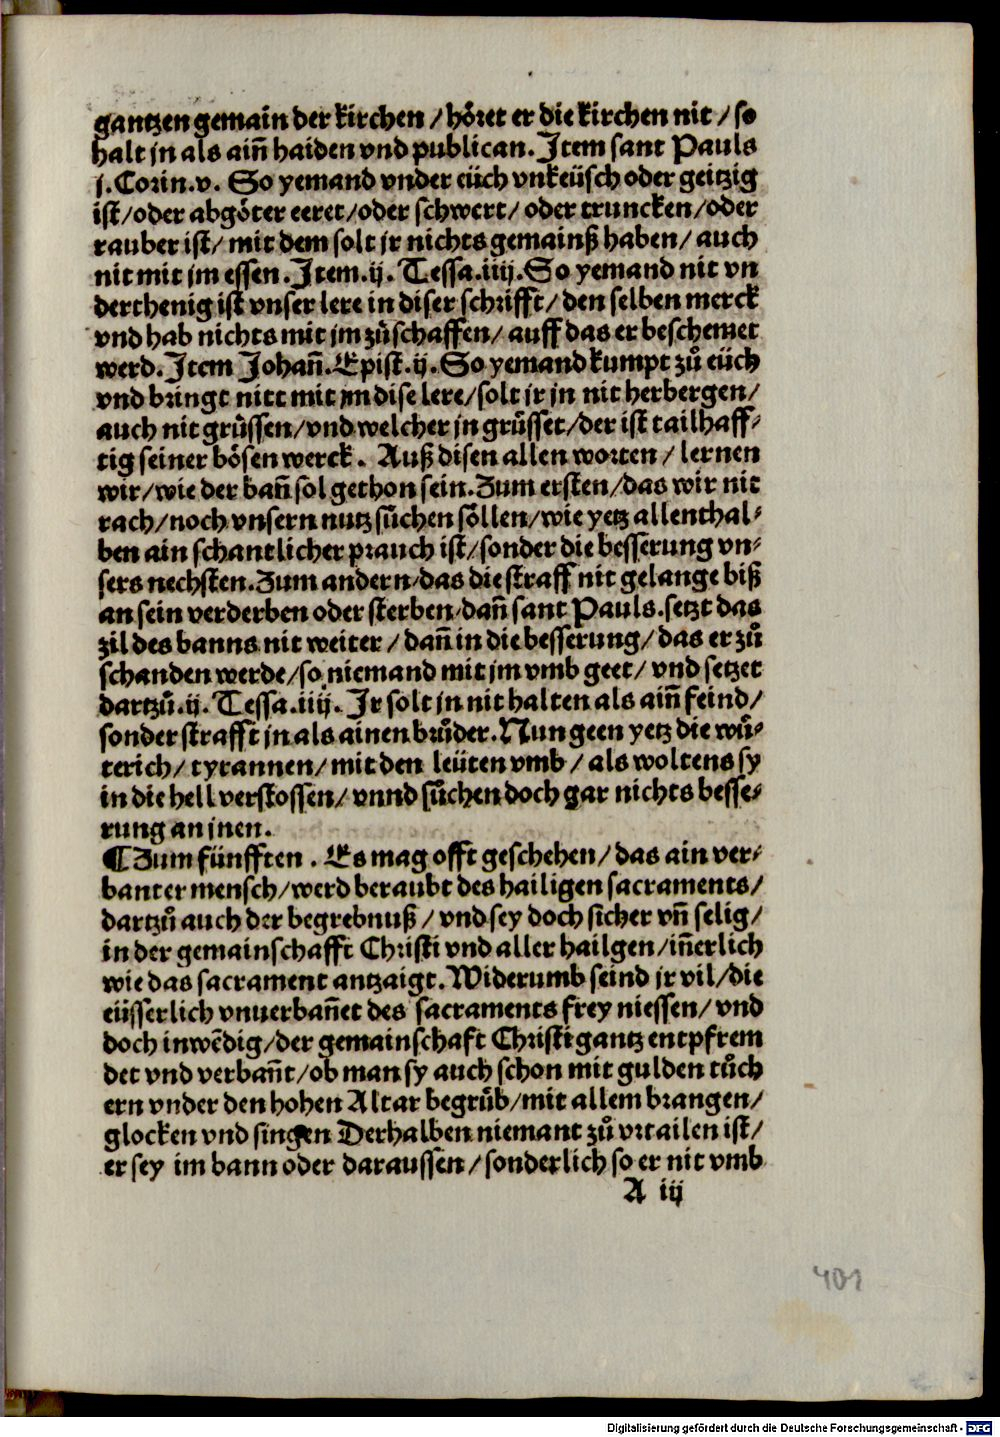 gantzen gemain der kirchen / hôret er die kirchen nit / so
halt jn als ain̄ haiden vnd publican. Item sant Pauls
j. Corin. v. So yemand vnder eüch vnkeüsch oder geitzig
ist / oder abgôter eeret / oder schwert / oder truncken / oder
rauber ist / mit dem solt jr nichts gemainß haben / auch
nit mit jm essen. Item. ij. Tessa. iiij. So yemand nit vn
derthenig ist vnser lere in diser schrifft / den selben merck
vnd hab nichts mit jm zůschaffen / auff das er beschemet
werd. Item Johan̄. Epist. ij. So yemand kumpt zů eüch
vnd bringt nitt mit jm dise lere / solt jr jn nit herbergen /
auch nit grüssen / vnd welcher jn grüsset / der ist tailhaff⸗
tig seiner bôsen werck. Auß disen allen worten / lernen
wir / wie der ban̄ sol gethon sein. Zum ersten / das wir nit
rach / noch vnsern nutz sůchen sôllen / wie yetz allenthal⸗
ben ain schantlicher prauch ist / sonder die besserung vn⸗
sers nechsten. Zum andern / das die straff nit gelange biß
an sein verderben oder sterben / dan̄ sant Pauls. setzt das
zil des banns nit weiter / dan̄ in die besserung / das er zů
schanden werde / so niemand mit jm vmb geet / vnd setzet
dartzů. ij. Tessa. iiij. Ir solt jn nit halten als ain̄ feind /
sonder strafft jn als ainen brůder. Nun geen yetz die wů⸗
terich / tyrannen / mit den leüten vmb / als woltens sy
in die hell verstossen / vnnd sůchen doch gar nichts besse⸗
rung an jnen.
¶ Zum fünfften. Es mag offt geschehen / das ain ver⸗
banter mensch / werd beraubt des hailigen sacraments /
dartzů auch der begrebnuß / vnd sey doch sicher vn̄ selig /
in der gemainschafft Christi vnd aller hailgen / in̄erlich
wie das sacrament antzaigt. Widerumb seind jr vil / die
eüsserlich vnuerban̄et des sacraments frey niessen / vnd
doch inwēdig / der gemainschaft Christi gantz entpfrem
det vnd verban̄t / ob man sy auch schon mit gulden tůch
ern vnder den hohen Altar begrůb / mit allem brangen /
glocken vnd singen Derhalben niemant zů vrtailen ist /
er sey im bann oder daraussen / sonderlich so er nit vmb
A iij
401
Digitalisierung gefördert durch die Deutsche Forschungsgemeinschaft - DFG